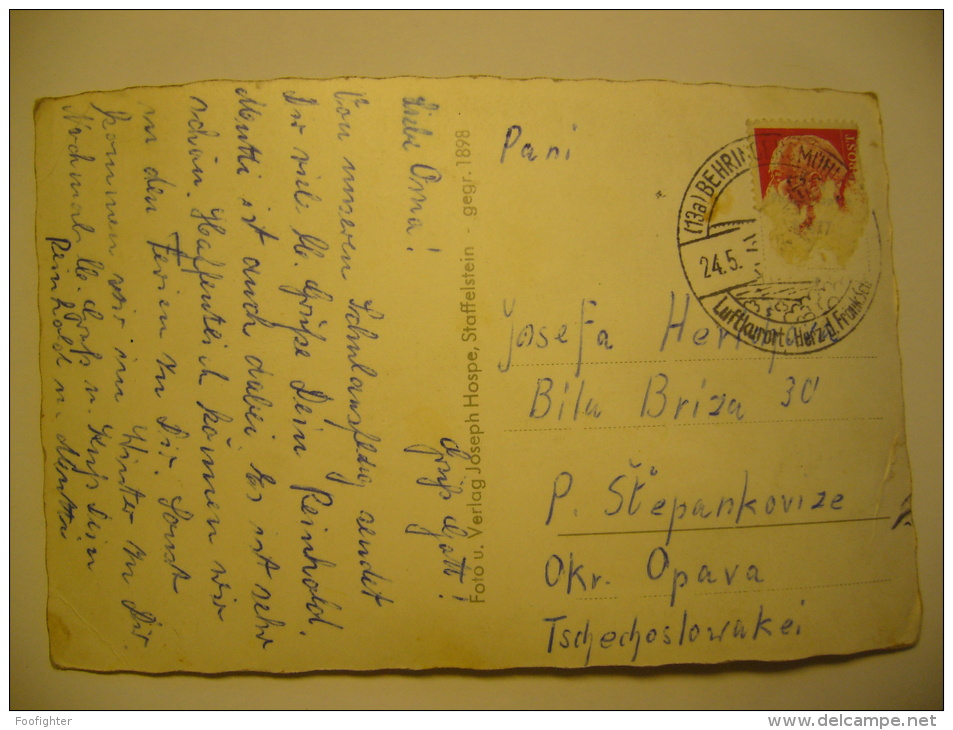 Liebe Oma!
Von unserem Schulausflug sendet
Dir viele lb. Grüße Dein Reinhold.
Mutti ist auch dabei. Es ist sehr
schön. Hoffentlich können wir
in den Ferien zu Dir. Sonst
kommen wir im Winter zu Dir.
Nochmals lb. Gruß u. Kuß Dein
Reinhold u. Mutti
Grüß Gott!
Foto u. Verlag Joseph Hospe, Staffelstein - gegr. 1898
Pani
Josefa
Bila Briza 30
P. Štěpankovize
Okr. Opava
Tschechoslowakei
(13a) BEHRING
24.5.
Luftkurort i. Herz d. Fränk.
Foofighter
www.delcampe.net